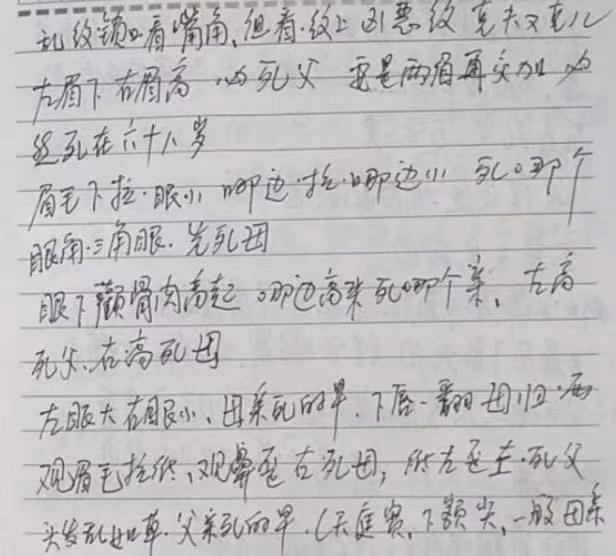 乱纹锁口看嘴角、但看·纹上 凶恶纹 克夫又克儿
左眉下 右眉高 必死父 要是两眉再交加 必
然死在六十八岁
眉毛下拉·眼小 哪边·拉·哪边小 死哪个
眼角·三角眼·先死母
眼下颧骨肉高起 哪边高来死哪个亲、左高
死父、右高死母
左眼大右眼小、母亲死的早·下唇一翻母归
观眉毛拉丝、观鼻歪右死母, 左歪左·死父
头发乱如草·父亲死的早·(天庭宽、下额尖、一般母亲